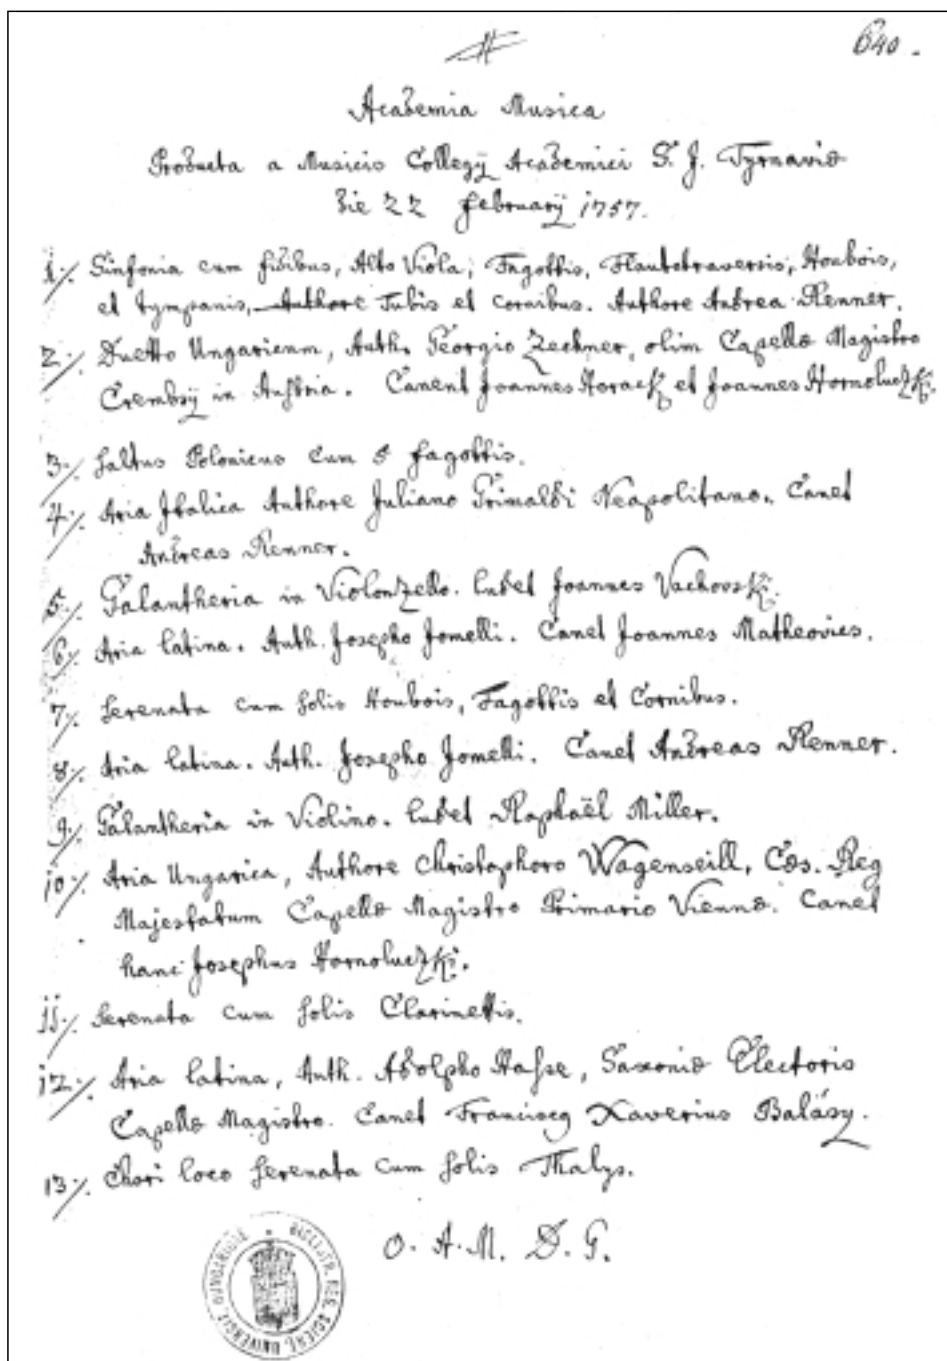 640.
Academia Musica
Producta a Musicis Collegij Academici S. J. Tyrnaviæ
Die 22 februarij 1757.
1/. Sinfonia cum fidibus, Alto Viola, Fagottis, Flautotraversis, Houbois,
et tympanis, Authore Tubis et cornibus. Authore Andrea Renner.
2/. Duetto Ungaricum, Auth. Georgio Zechner, olim Capellæ Magistro
Crembsÿ in Austria. Canent Joannes Horaczk et Joannes Hornoluczki.
3/. Saltus Polonicus cum 5 fagottis.
4/. Aria Italica Authore Juliano Grimaldi Neapolitano. Canet
Andreas Renner.
5/. Galantheria in Violonzello. Ludet Joannes Vachovszki.
6/. Aria latina. Auth. Josepho Jomelli. Canet Joannes Matheovics.
7/. Serenata cum solis Houbois, Fagottis et Cornibus.
8/. Aria latina. Auth. Josepho Jomelli. Canet Andreas Renner.
9/. Galantheria in Violino. Ludet Raphaël Miller.
10/. Aria Ungarica, Authore Christophoro Wagenseill, Cæs. Reg
Majestatum Capellæ Magistro Primario Viennæ. Canet
hanc Josephus Hornoluczki.
11/. Serenata cum solis Clarinettis.
12/. Aria latina, Auth. Adolpho Hasse, Saxoniæ Electoris
Capellæ Magistro. Canet Franciscq Xaverius Balásy.
13/. Chori loco Serenata cum solis Thalys.
O. A. M. D. G.